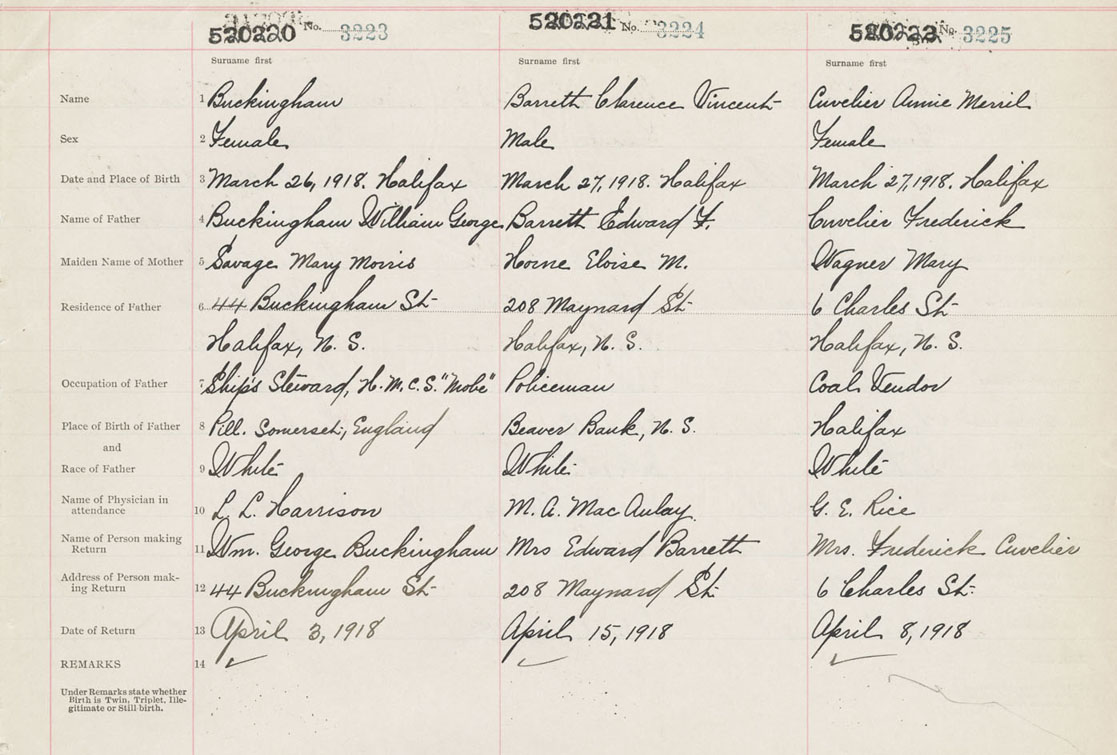 520220 No. 3223 520221 No. 3224 520222 No. 3225
Surname first Surname first Surname first
Name 1 Buckingham Barrett Clarence Vincent Cuvelier Annie Merril
Sex 2 Female Male Female
Date and Place of Birth 3 March 26, 1918. Halifax March 27, 1918. Halifax March 27, 1918. Halifax
Name of Father 4 Buckingham William George Barrett Edward F. Cuvelier Frederick
Maiden Name of Mother 5 Savage Mary Morris Horne Eloise M. Wagner Mary
Residence of Father 6 44 Buckingham St 208 Maynard St 6 Charles St
Halifax, N. S. Halifax, N. S. Halifax, N. S.
Occupation of Father 7 Ship's Steward, H.M.C.S. "Niobe" Policeman Coal Vendor
Place of Birth of Father 8 Pill. Somerset, England Beaver Bank, N. S. Halifax
and
Race of Father 9 White White White
Name of Physician in
attendance 10 L. L. Harrison M. A. MacAulay. G. E. Rice
Name of Person making
Return 11 Wm. George Buckingham Mrs Edward Barrett Mrs. Frederick Cuvelier
Address of Person mak-
ing Return 12 44 Buckingham St 208 Maynard St. 6 Charles St.
Date of Return 13 April 3, 1918 April 15, 1918 April 8, 1918
REMARKS 14
Under Remarks state whether
Birth is Twin, Triplet, Ille-
gitimate or Still-birth.